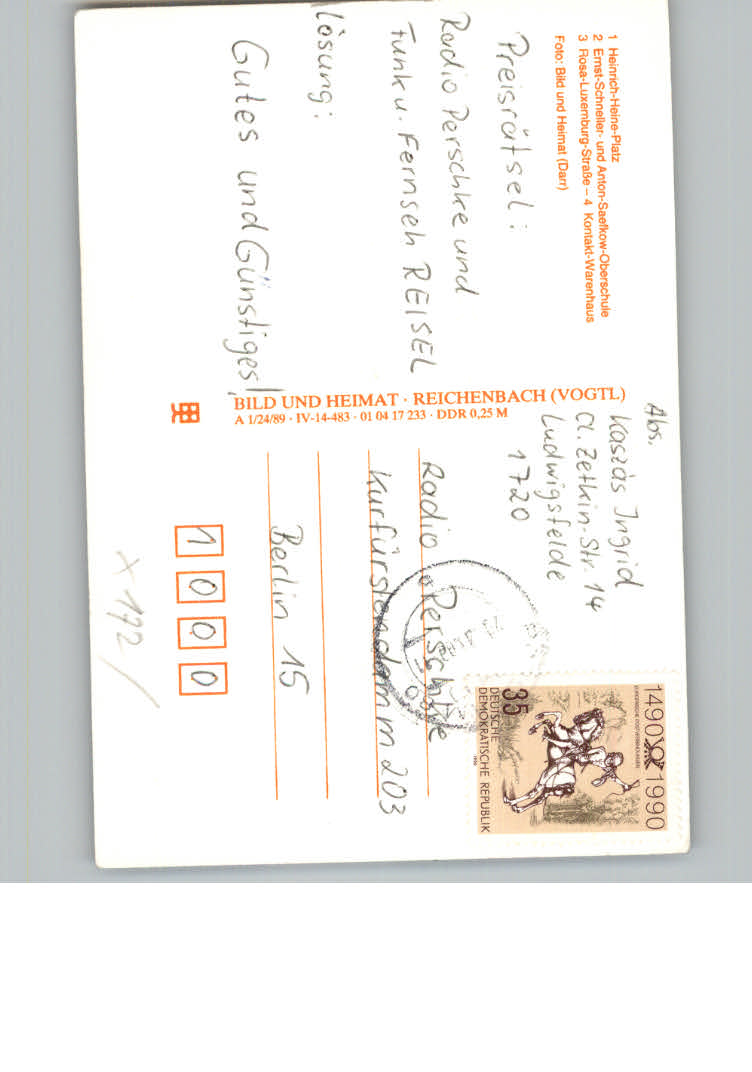 1 Heinrich-Heine-Platz
2 Ernst-Schneller- und Anton-Saefkow-Oberschule
3 Rosa-Luxemburg-Straße – 4 Kontakt-Warenhaus
Foto: Bild und Heimat (Darr)
Preisrätsel:
Radio Perschke und
Funk u. Fernseh REISEL
Lösung:
Gutes und Günstiges!
BILD UND HEIMAT · REICHENBACH (VOGTL)
A 1/24/89 · IV-14-483 · 01 04 17 233 · DDR 0,25 M
Abs.
Kaszás Ingrid
Cl. Zetkin-Str. 14
Ludwigsfelde
1720
1490 1990
35
DEUTSCHE
DEMOKRATISCHE REPUBLIK
1990
Radio Perschke
Kurfürstendamm 203
Berlin 15
1000
x 192/